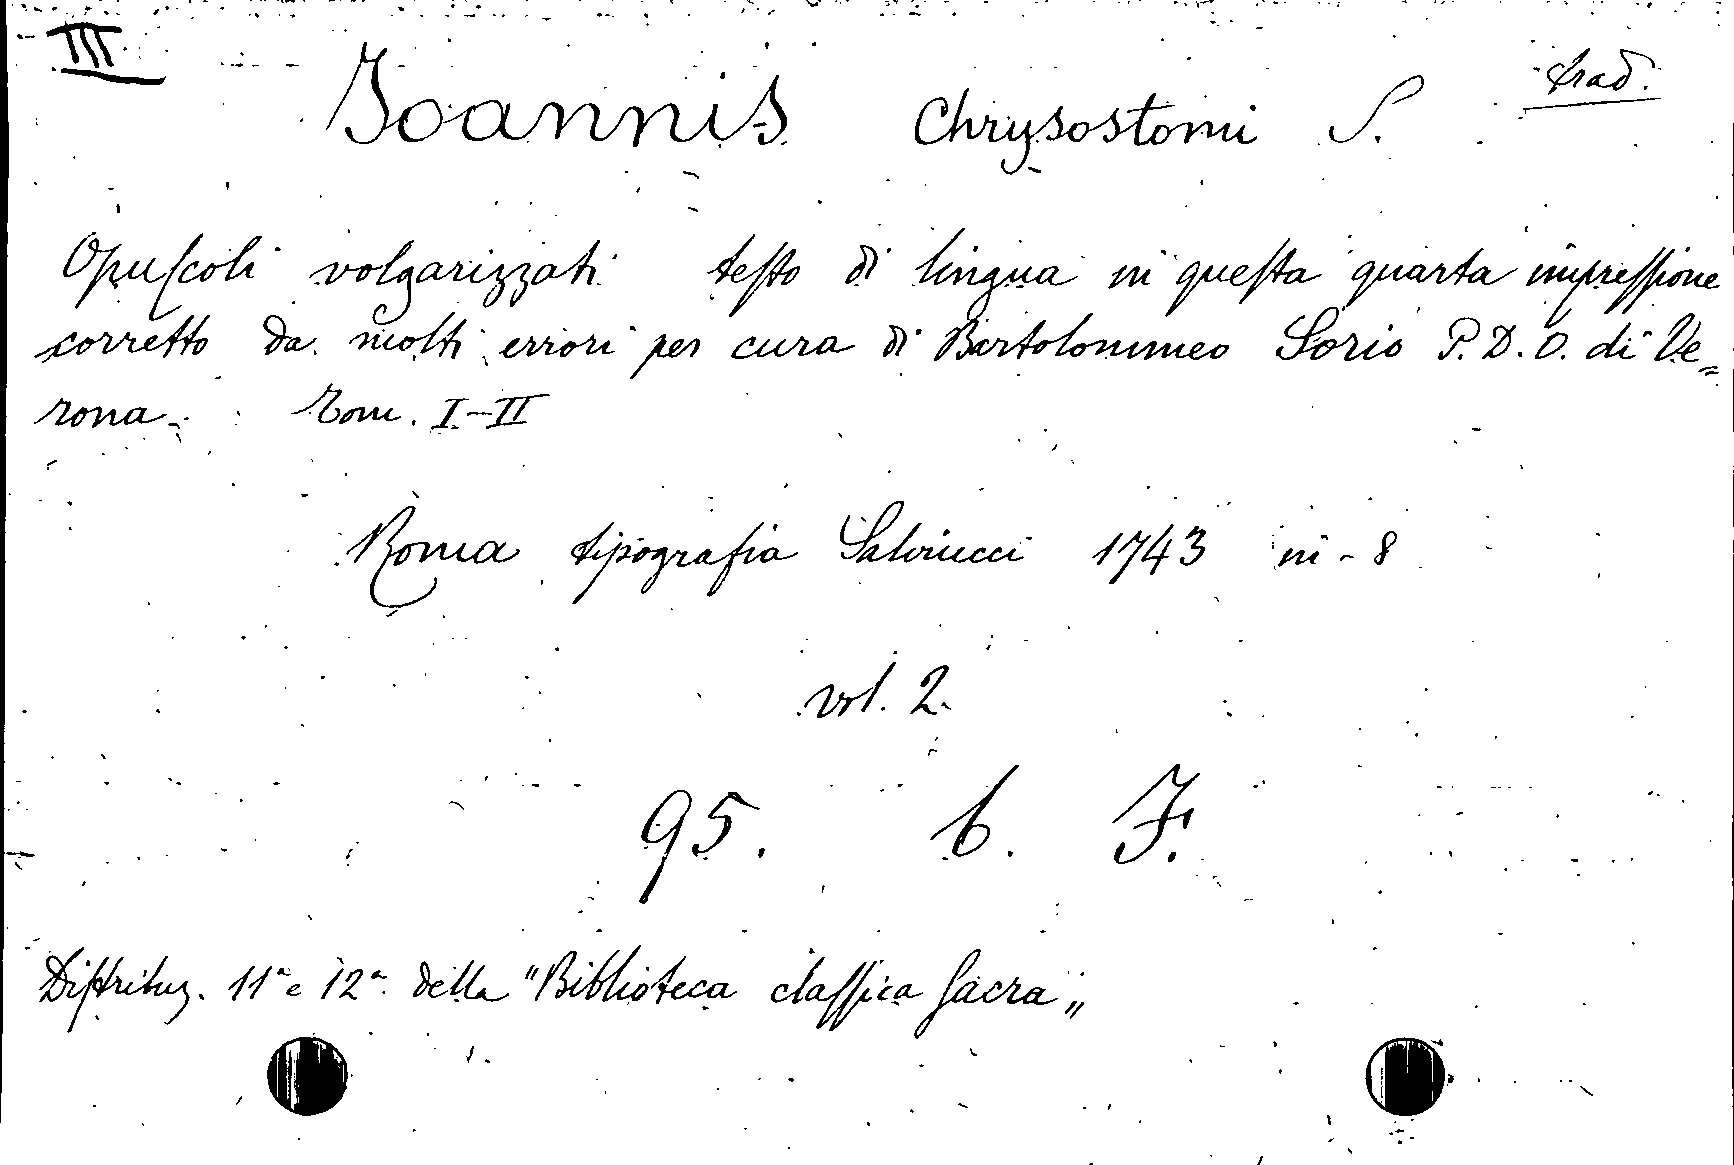 III
trad.
Joannis Chrysostomi S.
Opuſcoli volgarizzati teſto di lingua in queſta quarta impreſſione
corretto da molti errori per cura di Bartolommeo Sorio P. D. O. di Ve=
rona. Tom. I-II
Roma tipografia Salviucci 1743 in-8
vol. 2.
95. b. F.
Diſtribuz. 11ª e 12ª della "Biblioteca claſſica ſacra„